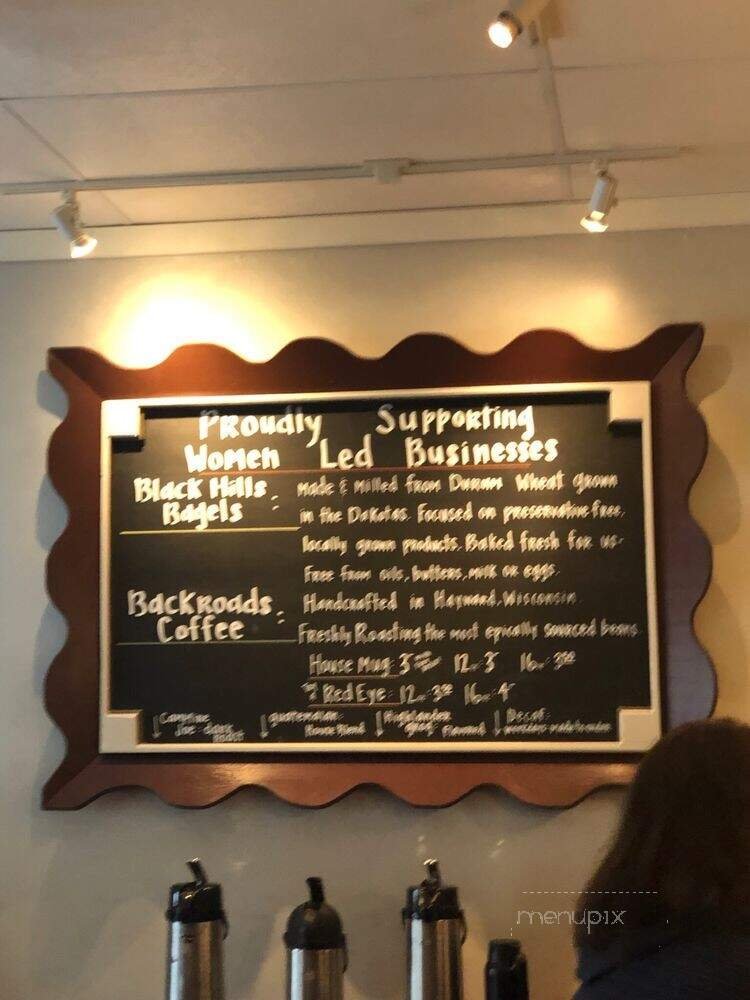 Proudly Supporting
Women Led Businesses
Black Hills : made & milled from Durum Wheat grown
Bagels in the Dakotas. Focused on preservative free,
locally grown products. Baked fresh for us.
Free from oils, butters, milk or eggs.
Backroads : Handcrafted in Hayward, Wisconsin
Coffee Freshly Roasting the most epically sourced beans
House Mug: 12oz 16oz
Red Eye: 12oz 16oz
↓ Campfire ↓ guatemalan: ↓ Highlander ↓ Decaf:
Joe: dark roast House Blend grog: Flavored
menupix